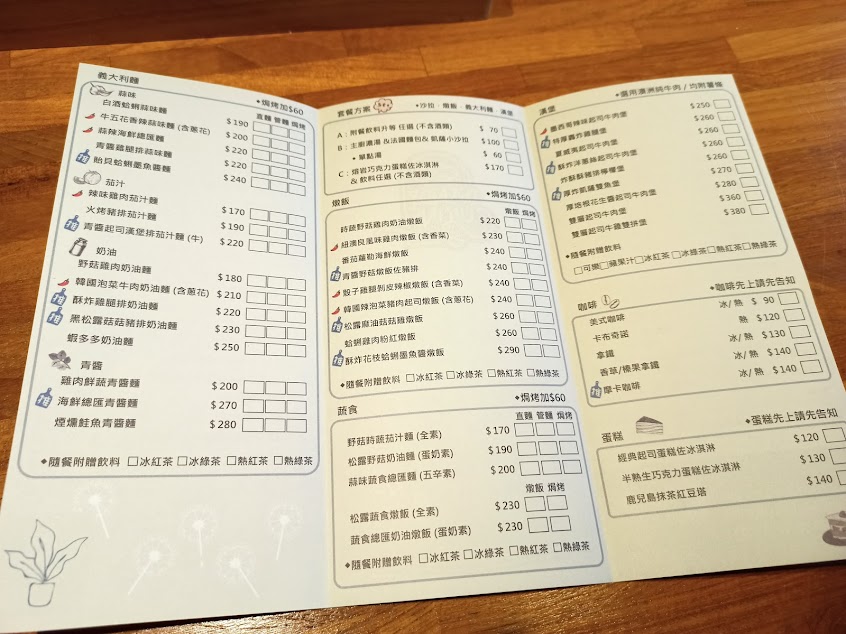 義大利麵
◆焗烤加$60
直麵 管麵 焗烤
蒜味
白酒蛤蜊蒜味麵 $190
牛五花香辣蒜味麵 (含蔥花) $200
蒜辣海鮮總匯麵 $220
青醬雞腿排蒜味麵 $220
飴貝蛤蜊墨魚醬麵 $240
茄汁
辣味雞肉茄汁麵 $170
火烤豬排茄汁麵 $190
青醬起司漢堡排茄汁麵 (牛) $220
奶油
野菇雞肉奶油麵 $180
韓國泡菜牛肉奶油麵 (含蔥花) $210
酥炸雞腿排奶油麵 $220
黑松露菇菇豬排奶油麵 $230
蝦多多奶油麵 $250
青醬
雞肉鮮蔬青醬麵 $200
海鮮總匯青醬麵 $270
煙燻鮭魚青醬麵 $280
◆隨餐附贈飲料 □冰紅茶 □冰綠茶 □熱紅茶 □熱綠茶
套餐方案 ◆沙拉‧燉飯‧義大利麵‧漢堡
A：附餐飲料升等 任選 (不含酒類) $ 70
B：主廚濃湯 &法國麵包& 凱薩小沙拉 $100
◆ 單點湯 $ 60
C：熔岩巧克力蛋糕佐冰淇淋 $170
& 飲料任選 (不含酒類)
燉飯 ◆焗烤$60
燉飯 焗烤
時蔬野菇雞肉奶油燉飯 $220
紐澳良風味雞肉燉飯 (含香菜) $230
番茄蘿勒海鮮燉飯 $240
青醬野菇燉飯佐豬排 $240
骰子雞腿剝皮辣椒燉飯 (含香菜) $240
韓國辣泡菜豬肉起司燉飯 (含蔥花) $240
松露麻油菇菇雞燉飯 $260
蛤蜊雞肉粉紅燉飯 $260
酥炸花枝蛤蜊墨魚醬燉飯 $290
◆隨餐附贈飲料 □冰紅茶 □冰綠茶 □熱紅茶 □熱綠茶
蔬食 ◆焗烤加$60
直麵 管麵 焗烤
野菇時蔬茄汁麵 (全素) $170
松露野菇奶油麵 (蛋奶素) $190
蒜味蔬食總匯麵 (五辛素) $200
燉飯 焗烤
松露蔬食燉飯 (全素) $230
蔬食總匯奶油燉飯 (蛋奶素) $230
◆隨餐附贈飲料 □冰紅茶 □冰綠茶 □熱紅茶 □熱綠茶
漢堡 ◆選用澳洲純牛肉 / 均附薯條
墨西哥辣味起司牛肉堡 $250
特厚轟炸雞腿堡 $260
夏威夷起司牛肉堡 $260
酥炸洋蔥絲起司牛肉堡 $260
炸酥酥豬排檸檬堡 $260
厚炸凱薩雙魚堡 $270
厚培根花生醬起司牛肉堡 $280
雙層起司牛肉堡 $360
雙層起司牛雞雙拼堡 $380
◆隨餐附贈飲料
□可樂□蘋果汁□冰紅茶□冰綠茶□熱紅茶□熱綠茶
咖啡 ◆咖啡先上請先告知
美式咖啡 冰/ 熱 $ 90
卡布奇諾 熱 $120
拿鐵 冰/ 熱 $130
香草/榛果拿鐵 冰/ 熱 $140
摩卡咖啡 冰/ 熱 $140
蛋糕 ◆蛋糕先上請先告知
經典起司蛋糕佐冰淇淋 $120
半熟生巧克力蛋糕佐冰淇淋 $130
鹿兒島抹茶紅豆塔 $140